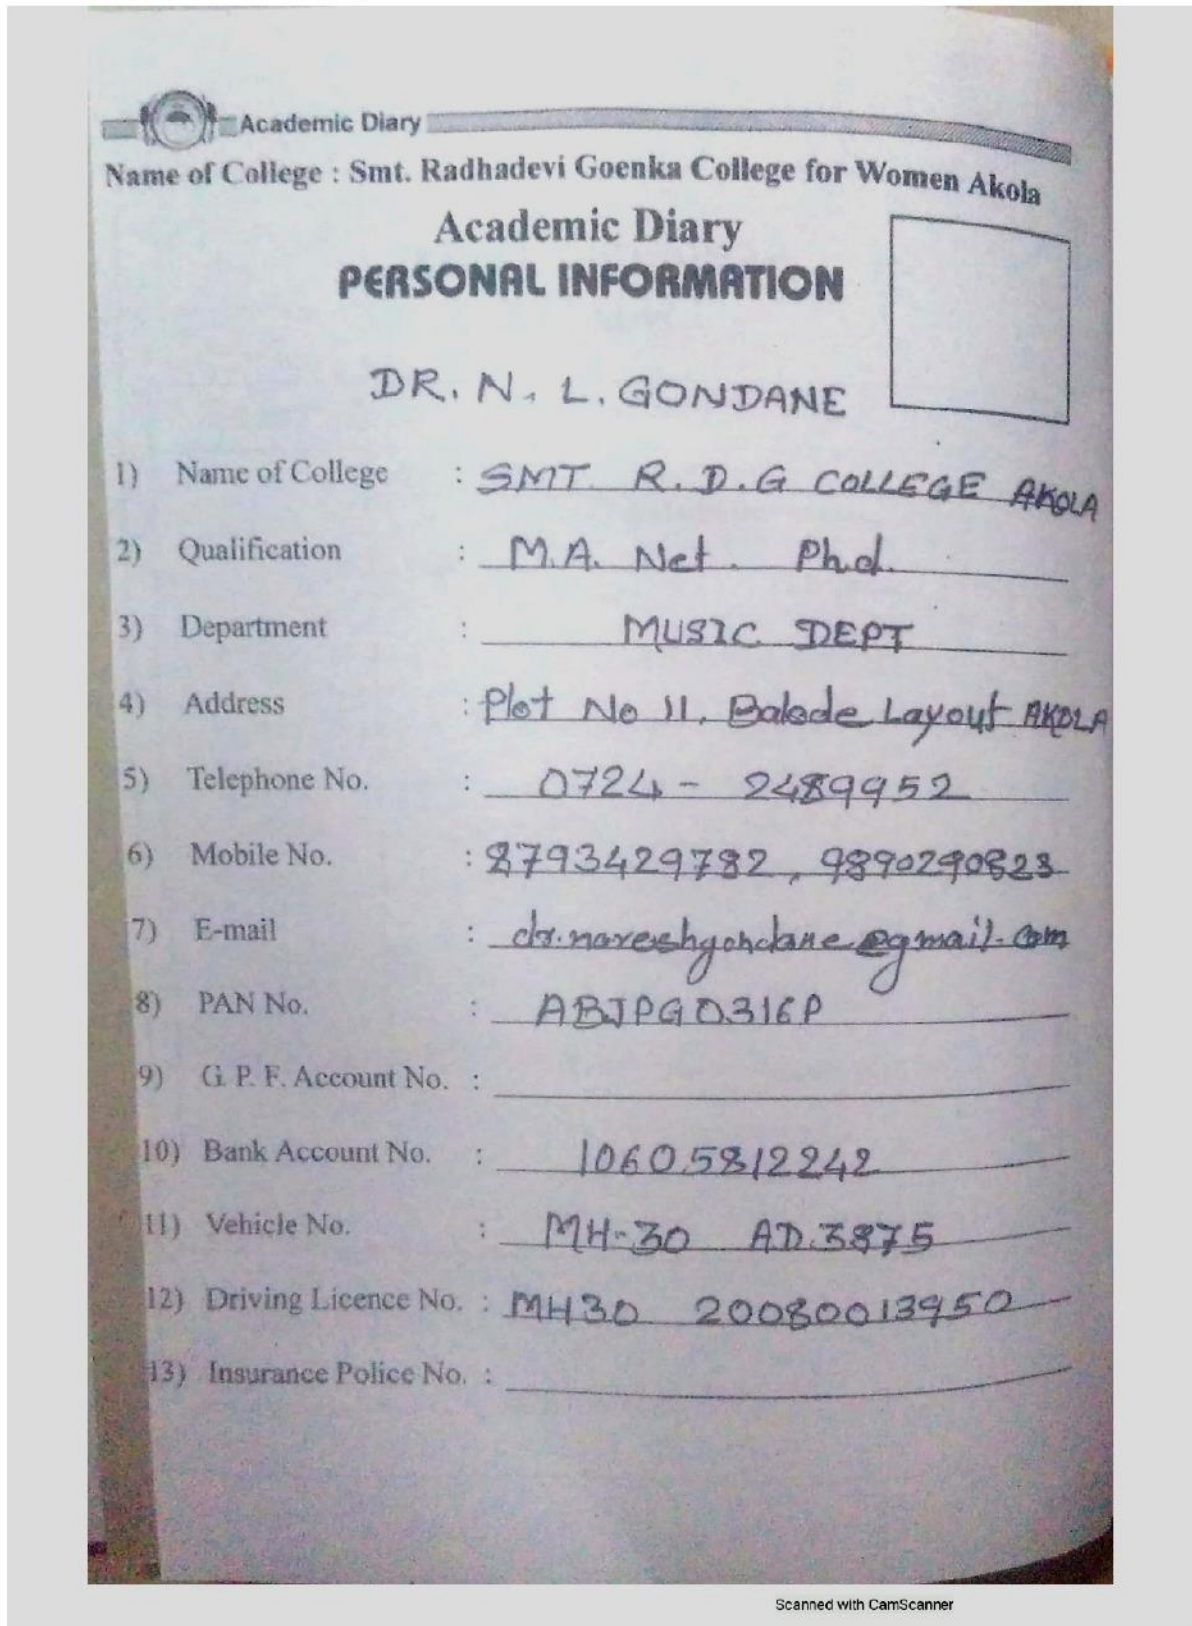 Academic Diary
Name of College : Smt. Radhadevi Goenka College for Women Akola
Academic Diary
PERSONAL INFORMATION
DR. N. L. GONDANE
1) Name of College : SMT. R. D. G COLLEGE AKOLA
2) Qualification : M.A. Net. Ph.d.
3) Department : MUSIC DEPT
4) Address : Plot No 11, Balode Layout AKOLA
5) Telephone No. : 0724 - 2489952
6) Mobile No. : 8793429782, 9890290823
7) E-mail : dr.nareshgondane@gmail.com
8) PAN No. : ABJPG0316P
9) G. P. F. Account No. :
10) Bank Account No. : 10605812242
11) Vehicle No. : MH-30 AD.3875
12) Driving Licence No. : MH30 20080013950
13) Insurance Police No. :
Scanned with CamScanner